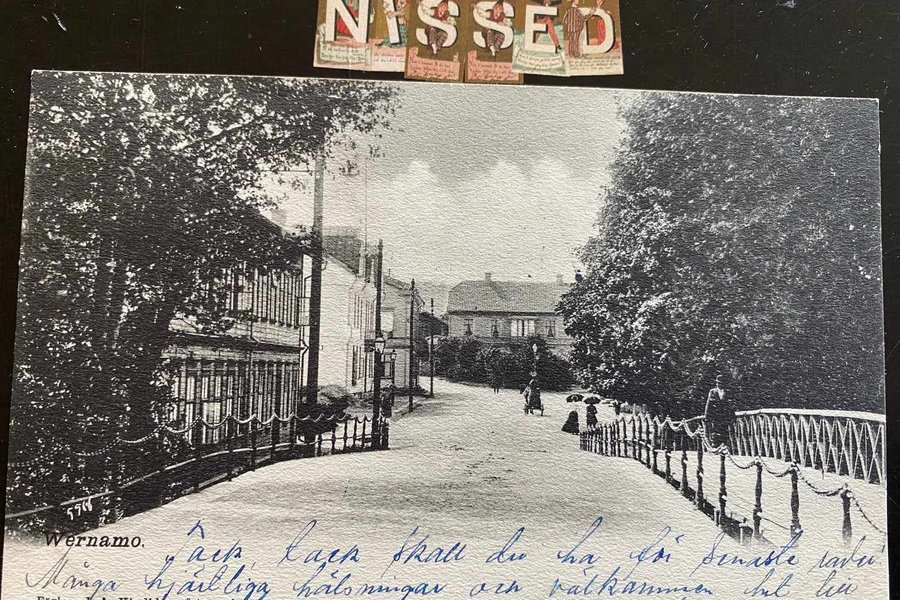 NISSED
Wernamo.
Tack, tack skall du ha för senaste
Många hjärtliga hälsningar och välkommen hit till